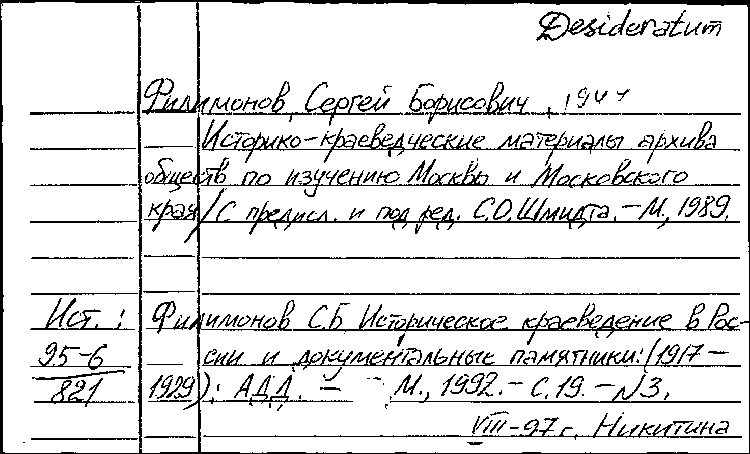 Desideratum
Филимонов, Сергей Борисович, 1944
Историко-краеведческие материалы архива
обществ по изучению Москвы и Московского
края / С предисл. и под ред. С.О. Шмидта. - М., 1989.
Ист.: Филимонов С.Б Историческое краеведение в Рос-
95-6 сии и документальные памятники: (1917 -
821 1929): АДД. - - М., 1992. - С. 19. - N3.
VIII-97 г. Никитина